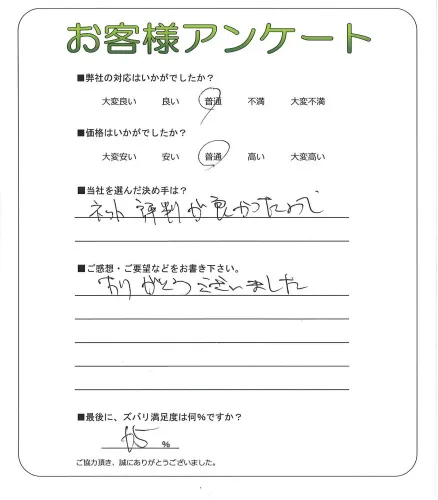 お客様アンケート
■弊社の対応はいかがでしたか？
大変良い 良い 普通 不満 大変不満
■価格はいかがでしたか？
大変安い 安い 普通 高い 大変高い
■当社を選んだ決め手は？
ネット 評判が良かった
■ご感想・ご要望などをお書き下さい。
ありがとうございました
■最後に、ズバリ満足度は何%ですか？
%
ご協力頂き、誠にありがとうございました。